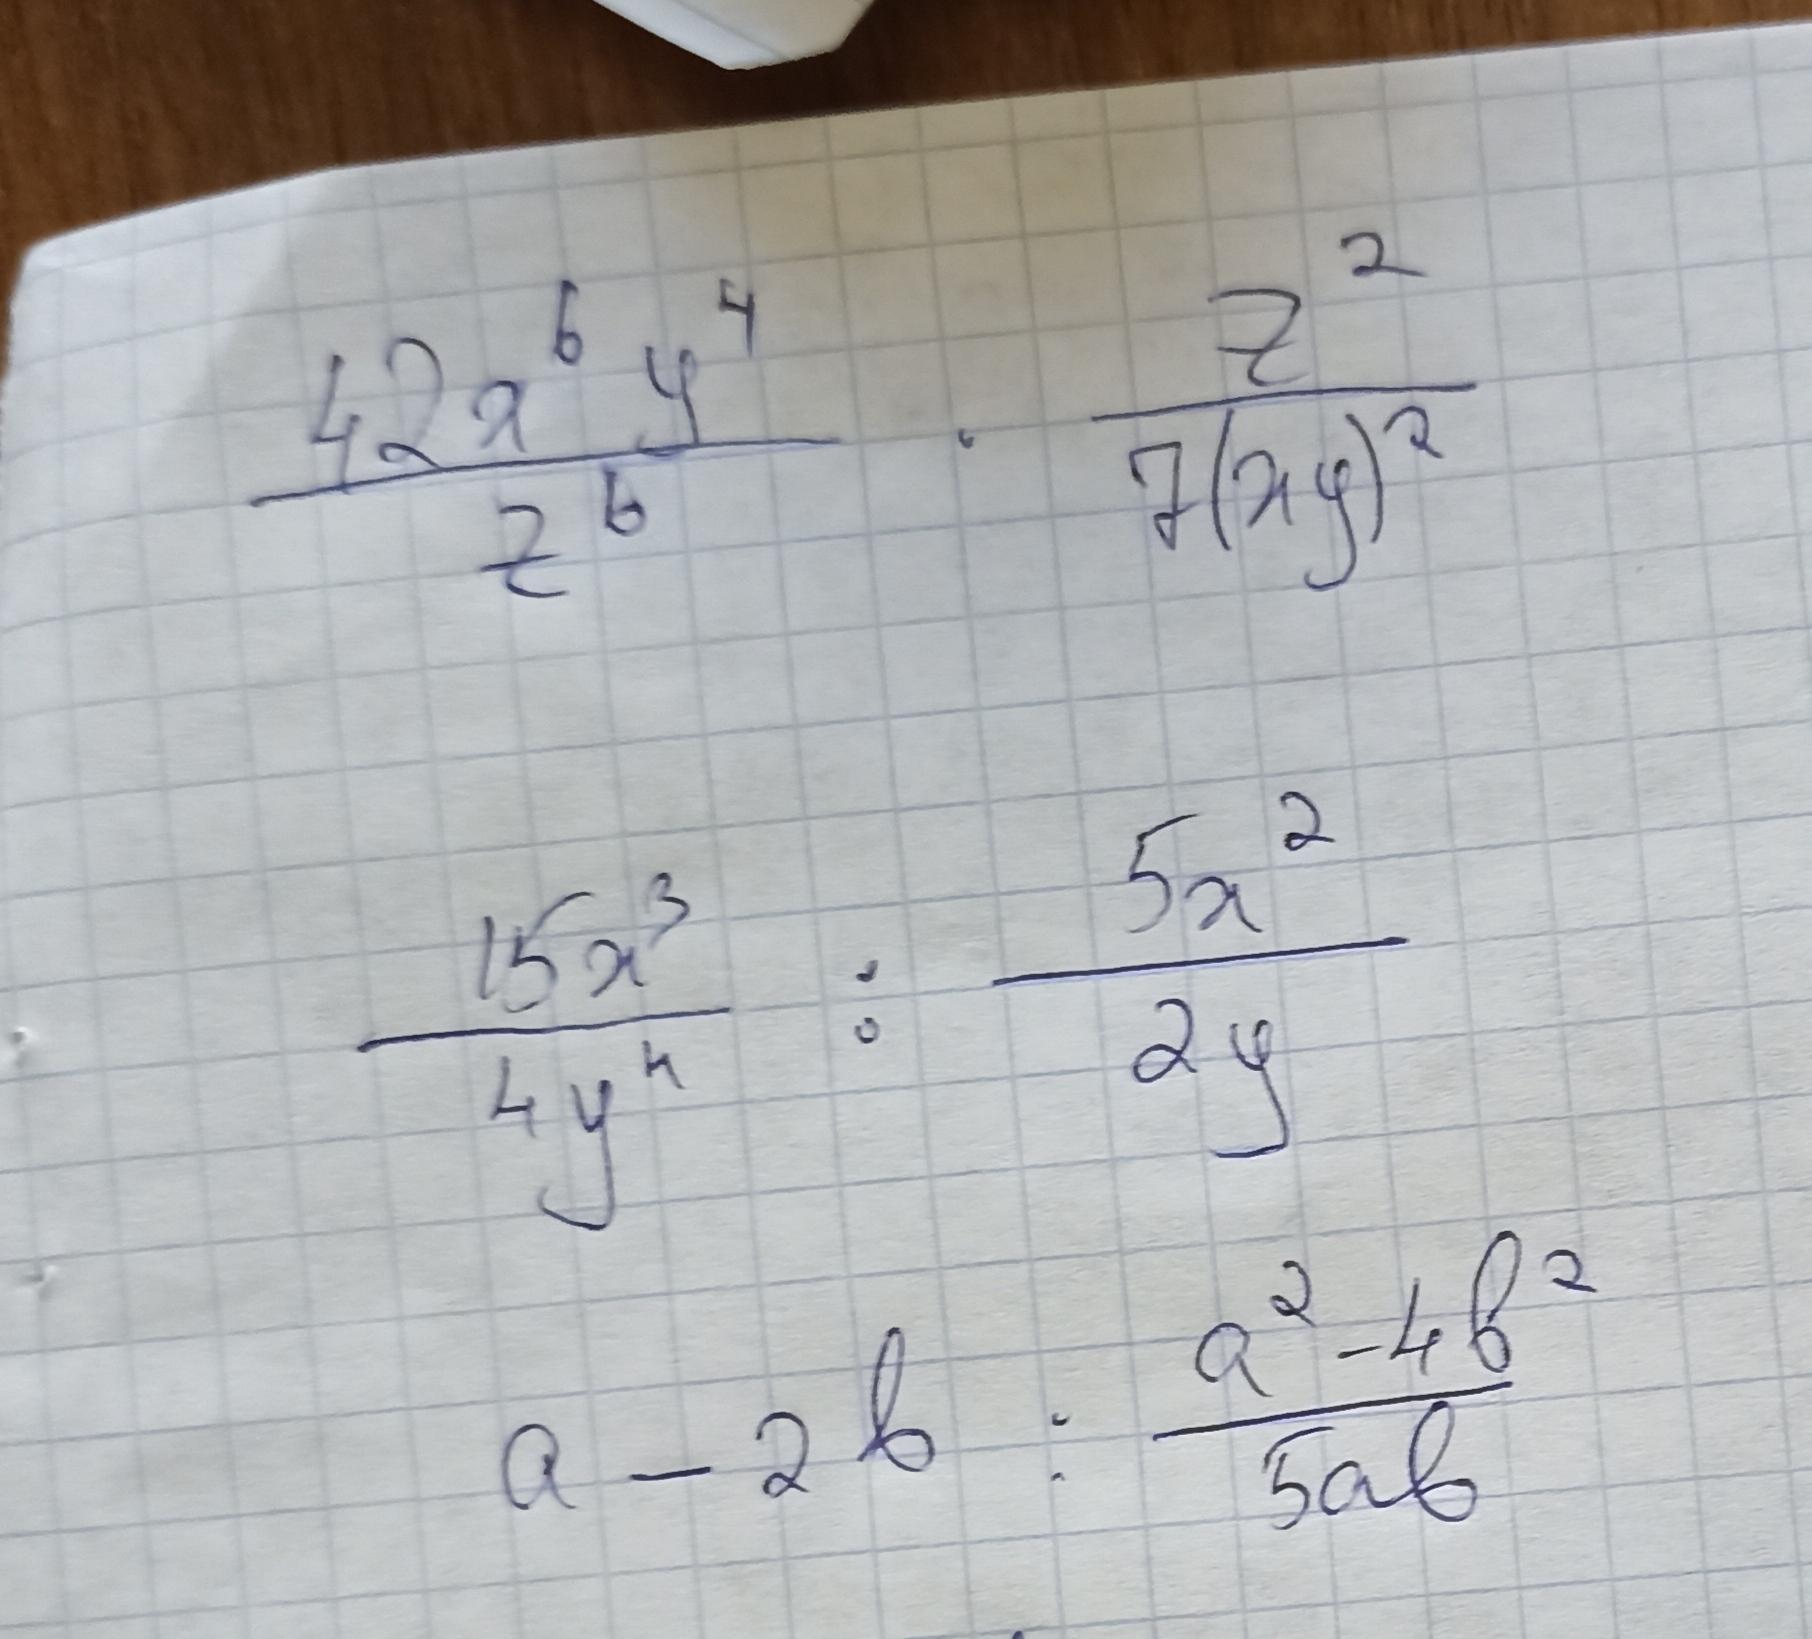 42x⁶y⁴/z⁶ · z²/7(xy)²
15x³/4y⁴ : 5x²/2y
a - 2b : a² - 4b²/5ab